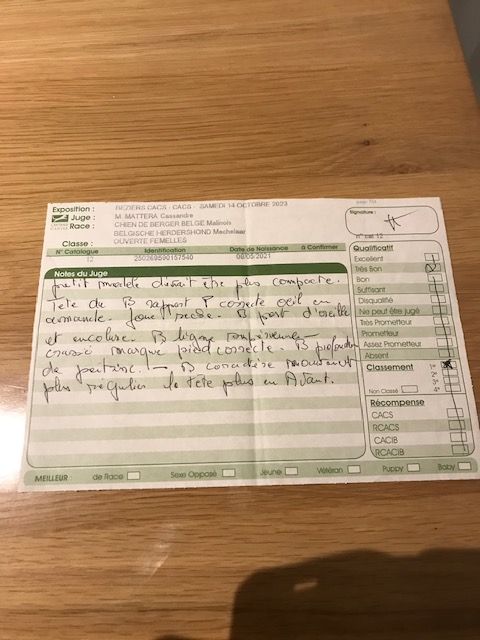 Exposition : BEZIERS CACS - CACS - SAMEDI 14 OCTOBRE 2023
Juge : M. MATTERA Cassandre
Race : CHIEN DE BERGER BELGE Malinois
BELGISCHE HERDERSHOND Mechelaar
Classe : OUVERTE FEMELLES
N° Catalogue Identification Date de Naissance à Confirmer
12 250269590157540 08/05/2021
Notes du Juge
petit modèle être plus compacte.
Tête de B rapport correcte oeil en
amande. B port d'oreille
et encolure. B ligne
masque pied correcte. B
de poitrine. B caractère mouvement
plus régulier la tête plus en Avant.
MEILLEUR de Race Sexe Opposé Jeune Vétéran Puppy Baby
Signature :
n° cat 12
Qualificatif
Excellent
Très Bon
Bon
Suffisant
Disqualifié
Ne peut être jugé
Très Prometteur
Prometteur
Assez Prometteur
Absent
Classement
Non Classé
Récompense
CACS
RCACS
CACIB
RCACIB